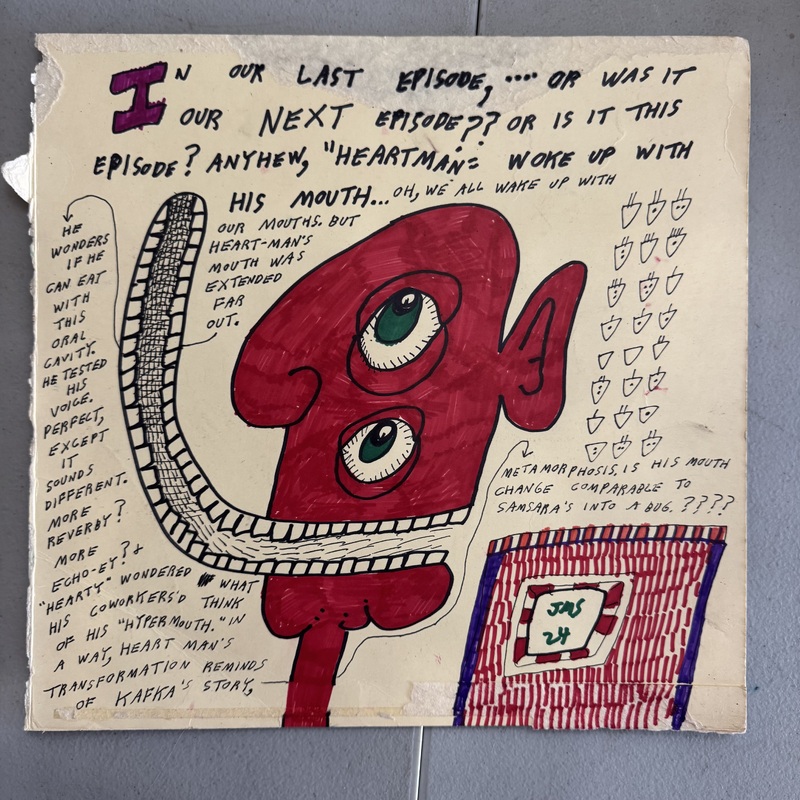 IN OUR LAST EPISODE, .... OR WAS IT
OUR NEXT EPISODE?? OR IS IT THIS
EPISODE? ANYHEW, "HEARTMAN" WOKE UP WITH
HIS MOUTH... OH, WE ALL WAKE UP WITH
OUR MOUTHS. BUT
HEART-MAN'S
MOUTH WAS
EXTENDED
FAR
OUT.
HE
WONDERS
IF HE
CAN EAT
WITH
THIS
ORAL
CAVITY.
HE TESTED
HIS
VOICE.
PERFECT,
EXCEPT
IT
SOUNDS
DIFFERENT.
MORE
REVERBY?
MORE
ECHO-EY? &
"HEARTY" WONDERED WHAT
HIS COWORKERS'D THINK
OF HIS "HYPERMOUTH." IN
A WAY, HEART MAN'S
TRANSFORMATION REMINDS
OF KAFKA'S STORY,
METAMORPHOSIS. IS HIS MOUTH
CHANGE COMPARABLE TO
SAMSARA'S INTO A BUG. ????
JMS
24